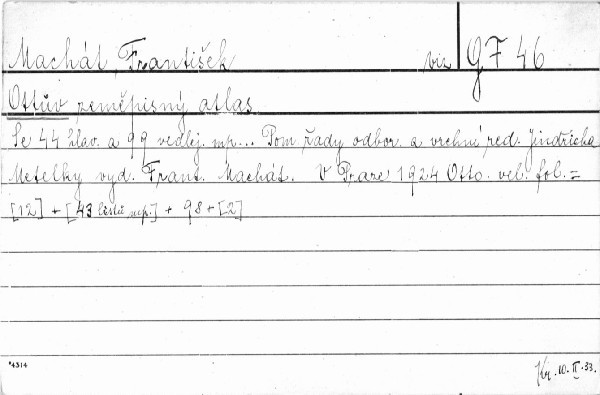 Machát, František viz GF 46
Ottův zeměpisný atlas
Se 44 hlav. a 99 vedlej. mp... Pom řady odbor. a vrchní red. Jindřicha
Metelky vyd. Frant. Machát. V Praze 1924 Otto. vel. fol. =
[12] + [43 listů mp.] + 98 + [2]
*4314 Kr. 10. II. 33.